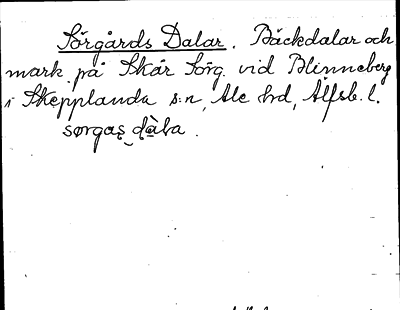 Sörgårds Dalar. Bäckdalar och
mark på Skår Sörg. vid Blinneberg
i Skepplanda s:n, Ale hd, Älfsb. l.